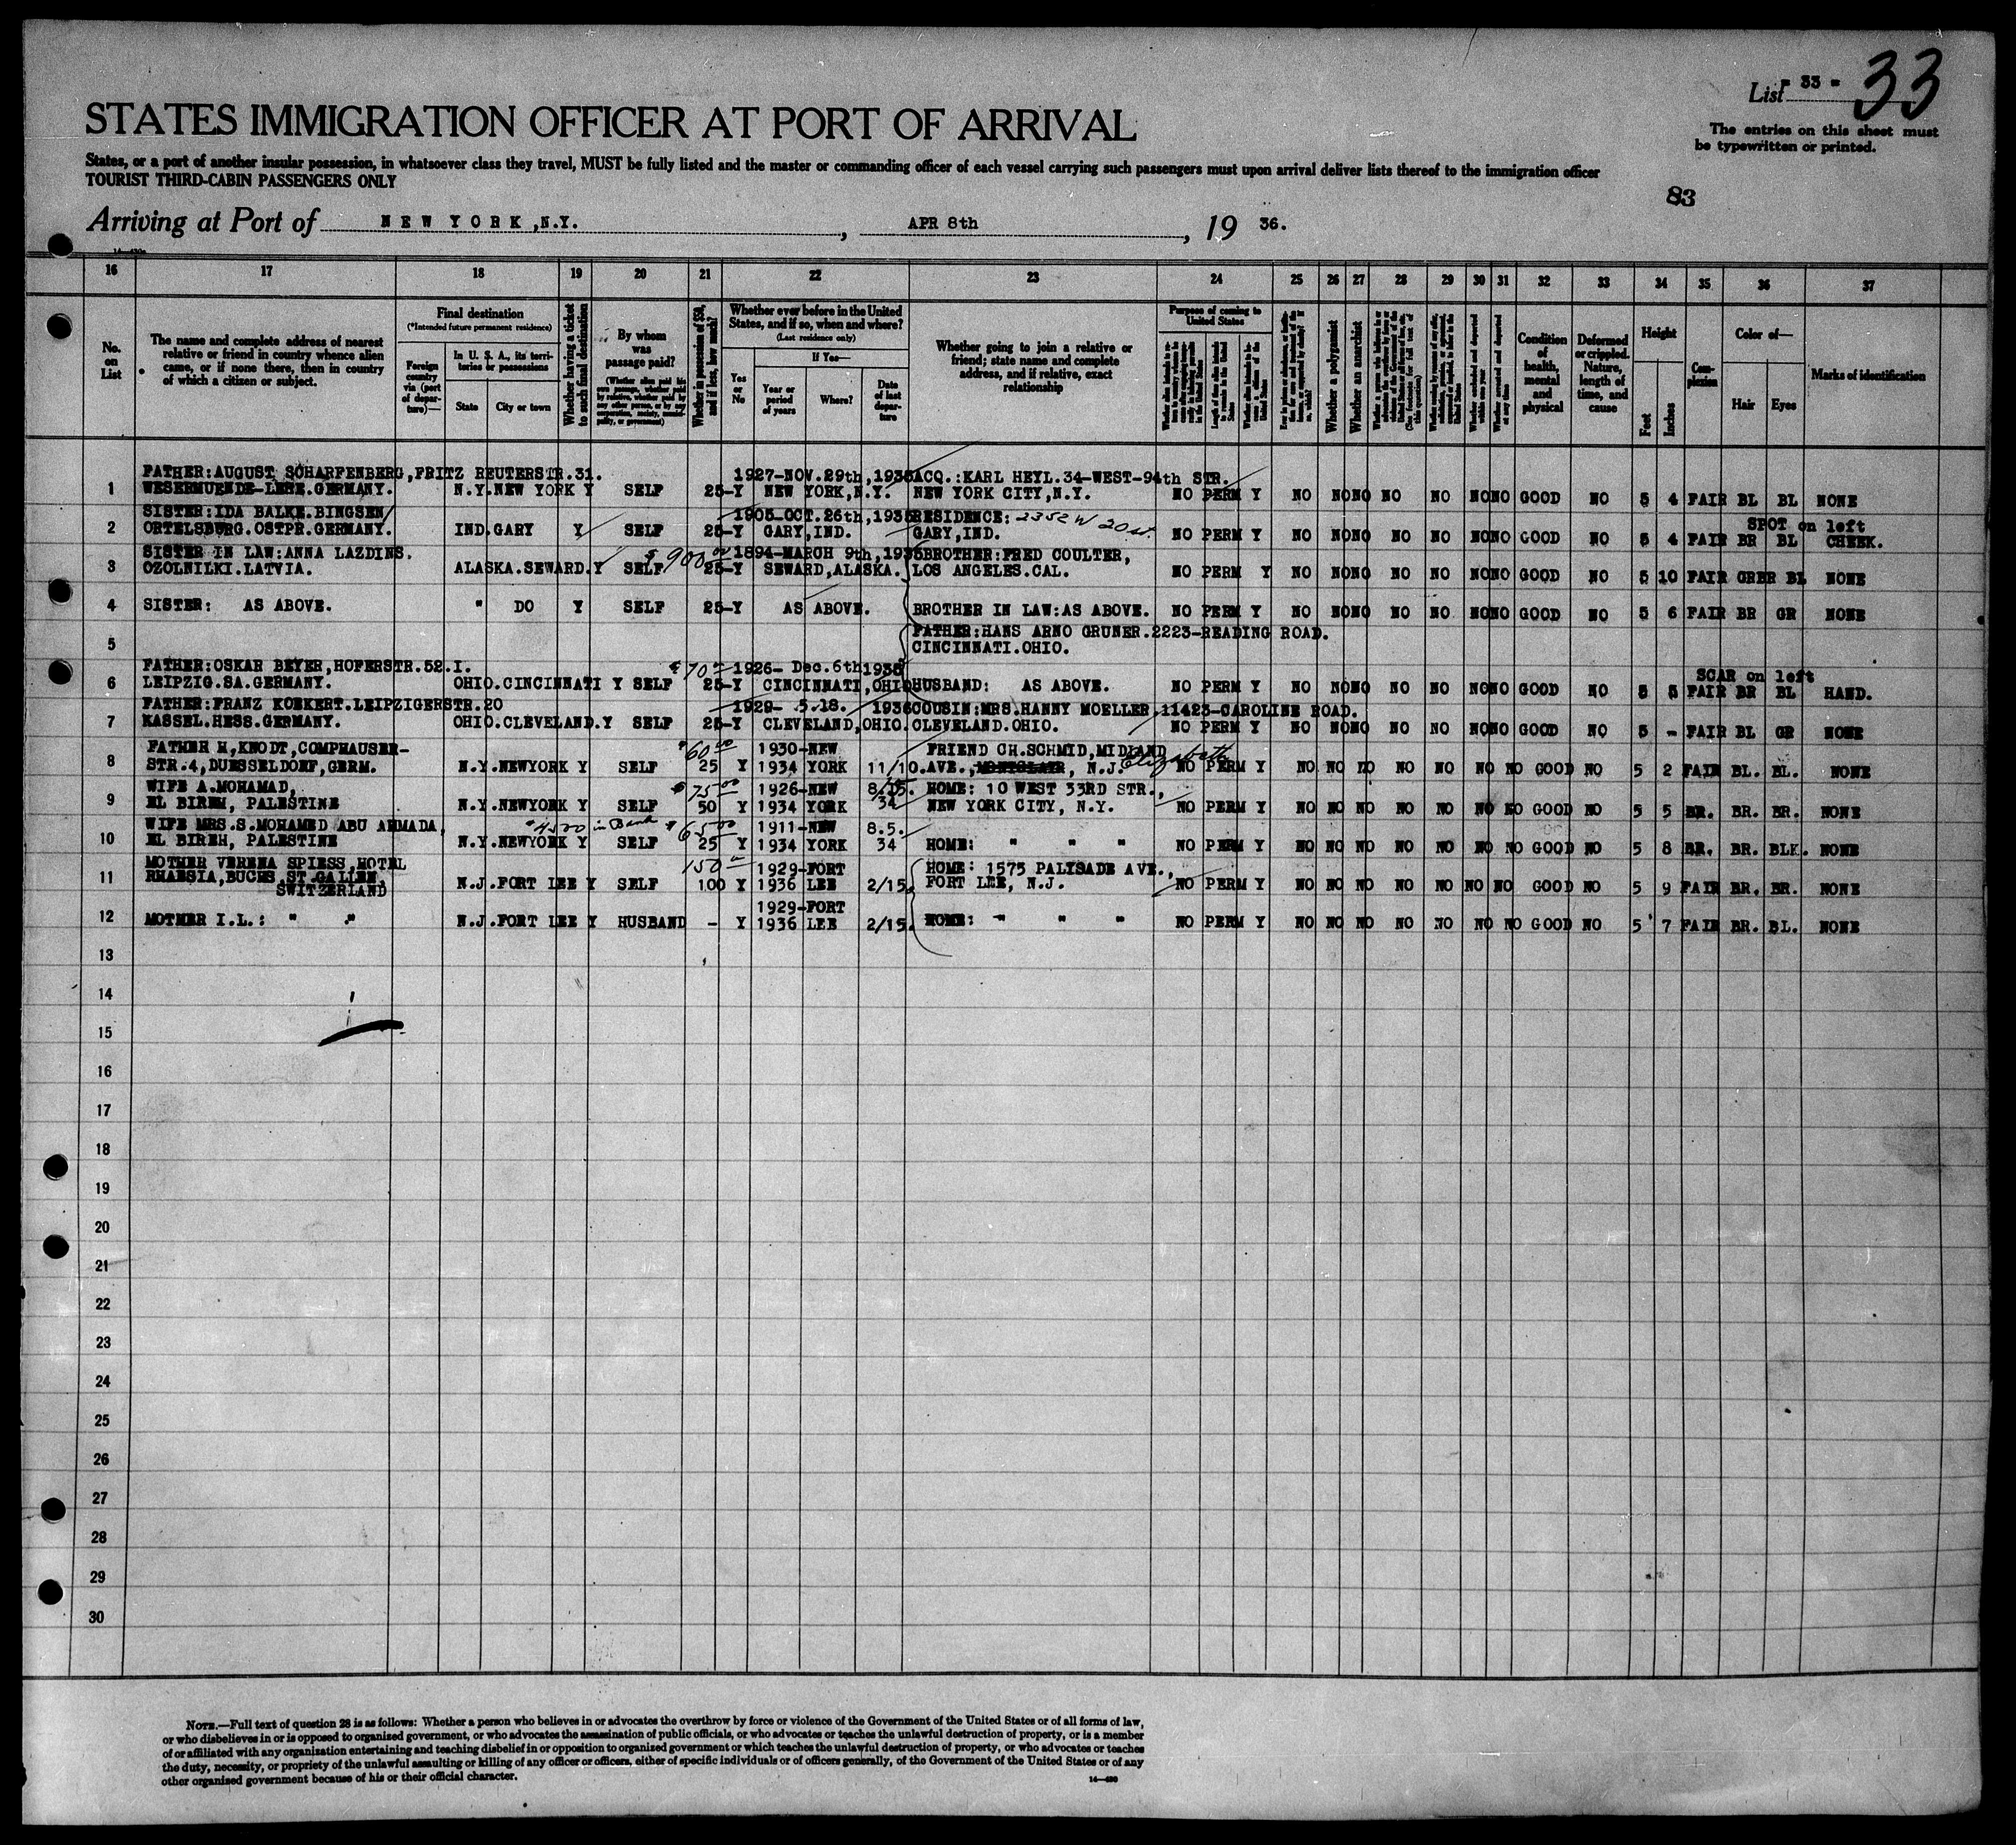 List - 33 - 33
The entries on this sheet must
be typewritten or printed.
STATES IMMIGRATION OFFICER AT PORT OF ARRIVAL
States, or a port of another insular possession, in whatsoever class they travel, MUST be fully listed and the master or commanding officer of each vessel carrying such passengers must upon arrival deliver lists thereof to the immigration officer
TOURIST THIRD-CABIN PASSENGERS ONLY
83
Arriving at Port of NEW YORK,N.Y. , APR 8th , 19 36.
16 17 18 19 20 21 22 23 24 25 26 27 28 29 30 31 32 33 34 35 36 37
No. on List
The name and complete address of nearest
relative or friend in country whence alien
came, or if none there, then in country
of which a citizen or subject.
Final destination
(*Intended future permanent residence)
Foreign country via (port of departure)—
In U. S. A., its territories or possessions
State City or town
Whether having a ticket to such final destination
By whom was passage paid?
(Whether alien paid his own passage, whether paid by relative, whether paid by any other person, or by any corporation, society, municipality, or government)
Whether in possession of $50, and if less, how much?
Whether ever before in the United
States, and if so, when and where?
(Last residence only)
Yes or No
If Yes—
Year or period of years
Where?
Date of last departure
Whether going to join a relative or
friend; state name and complete
address, and if relative, exact
relationship
Purpose of coming to United States
Whether a polygamist
Whether an anarchist
Condition of health, mental and physical
Deformed or crippled. Nature, length of time, and cause
Height
Feet Inches
Complexion
Color of—
Hair Eyes
Marks of identification
FATHER:AUGUST SCHARFENBERG,FRITZ REUTERSTR.31. 1927-NOV.29th,1935 ACQ.:KARL HEYL.34-WEST-94th STR.
1 WESERMUENDE-LEHE.GERMANY. N.Y.NEW YORK Y SELF 25-Y NEW YORK,N.Y. NEW YORK CITY,N.Y. NO PERM Y NO NO NO NO NO NO NO GOOD NO 5 4 FAIR BL BL NONE
SISTER:IDA BALKE.BINGSEN/ 1905-OCT.26th,1935 RESIDENCE: 2352 W 20 st. SPOT on left
2 ORTELSBURG.OSTPR.GERMANY. IND.GARY Y SELF 25-Y GARY,IND. GARY,IND. NO PERM Y NO NO NO NO NO NO NO GOOD NO 5 4 FAIR BR BL CHEEK.
SISTER IN LAW:ANNA LAZDINS. $900.00 1894-MARCH 9th,1935 BROTHER:FRED COULTER,
3 OZOLNILKI.LATVIA. ALASKA.SEWARD.Y SELF 25-Y SEWARD,ALASKA. LOS ANGELES.CAL. NO PERM Y NO NO NO NO NO NO NO GOOD NO 5 10 FAIR GRER BL NONE
4 SISTER: AS ABOVE. " DO Y SELF 25-Y AS ABOVE. BROTHER IN LAW:AS ABOVE. NO PERM Y NO NO NO NO NO NO NO GOOD NO 5 6 FAIR BR GR NONE
FATHER:HANS ARNO GRUNER.2223-READING ROAD.
5 CINCINNATI.OHIO.
FATHER:OSKAR BEYER,HOFERSTR.52.I. $70.00 1926- Dec.6th 1935 SCAR on left
6 LEIPZIG.SA.GERMANY. OHIO.CINCINNATI Y SELF 25-Y CINCINNATI,OHIO HUSBAND: AS ABOVE. NO PERM Y NO NO NO NO NO NO NO GOOD NO 5 5 FAIR BR BL HAND.
FATHER:FRANZ KOEKERT.LEIPZIGERSTR.20 1929- 5.18. 1936 COUSIN:MRS.HANNY MOELLER.11423-CAROLINE ROAD.
7 KASSEL.HESS.GERMANY. OHIO.CLEVELAND.Y SELF 25-Y CLEVELAND,OHIO. CLEVELAND.OHIO. NO PERM Y NO NO NO NO NO NO NO GOOD NO 5 - FAIR BL GR NONE
FATHER H,KNODT,COMPHAUSER- $60.00 1930-NEW FRIEND CH.SCHMID,MIDLAND
8 STR.4,DUESSELDORF,GERM. N.Y.NEWYORK Y SELF 25 Y 1934 YORK 11/10. AVE.,MONTCLAIR, N.J. Elizabeth NO PERM Y NO NO NO NO NO NO NO GOOD NO 5 2 FAIR BL. BL. NONE
WIFE A.MOHAMAD, $75.00 1926-NEW 8/15. HOME: 10 WEST 33RD STR.,
9 EL BIREH, PALESTINE N.Y.NEWYORK Y SELF 50 Y 1934 YORK 34 NEW YORK CITY, N.Y. NO PERM Y NO NO NO NO NO NO NO GOOD NO 5 5 BR. BR. BR. NONE
WIFE MRS.S.MOHAMED ABU AHMADA, $4500 in Bank $65.00 1911-NEW 8.5.
10 EL BIREH, PALESTINE N.Y.NEWYORK Y SELF 25 Y 1934 YORK 34 HOME: " " " NO PERM Y NO NO NO NO NO NO NO GOOD NO 5 8 BR. BR. BLK. NONE
MOTHER VERENA SPIESS,HOTEL 150 1929-FORT HOME: 1575 PALYSADE AVE.,
11 RHAESIA,BUCHS,ST.GALLEN, N.J.FORT LEE Y SELF 100 Y 1936 LEE 2/15. FORT LEE, N.J. NO PERM Y NO NO NO NO NO NO NO GOOD NO 5 9 FAIR BR. BR. NONE
SWITZERLAND
1929-FORT
12 MOTHER I.L.: " " N.J.FORT LEE Y HUSBAND - Y 1936 LEE 2/15. HOME: " " " NO PERM Y NO NO NO NO NO NO NO GOOD NO 5 7 FAIR BR. BL. NONE
13
14
15
16
17
18
19
20
21
22
23
24
25
26
27
28
29
30
NOTE.—Full text of question 28 is as follows: Whether a person who believes in or advocates the overthrow by force or violence of the Government of the United States or of all forms of law,
or who disbelieves in or is opposed to organized government, or who advocates the assassination of public officials, or who advocates or teaches the unlawful destruction of property, or is a member
of or affiliated with any organization entertaining and teaching disbelief in or opposition to organized government or which teaches the unlawful destruction of property, or who advocates or teaches
the duty, necessity, or propriety of the unlawful assaulting or killing of any officer or officers, either of specific individuals or of officers generally, of the Government of the United States or of any
other organized government because of his or their official character.
14—430